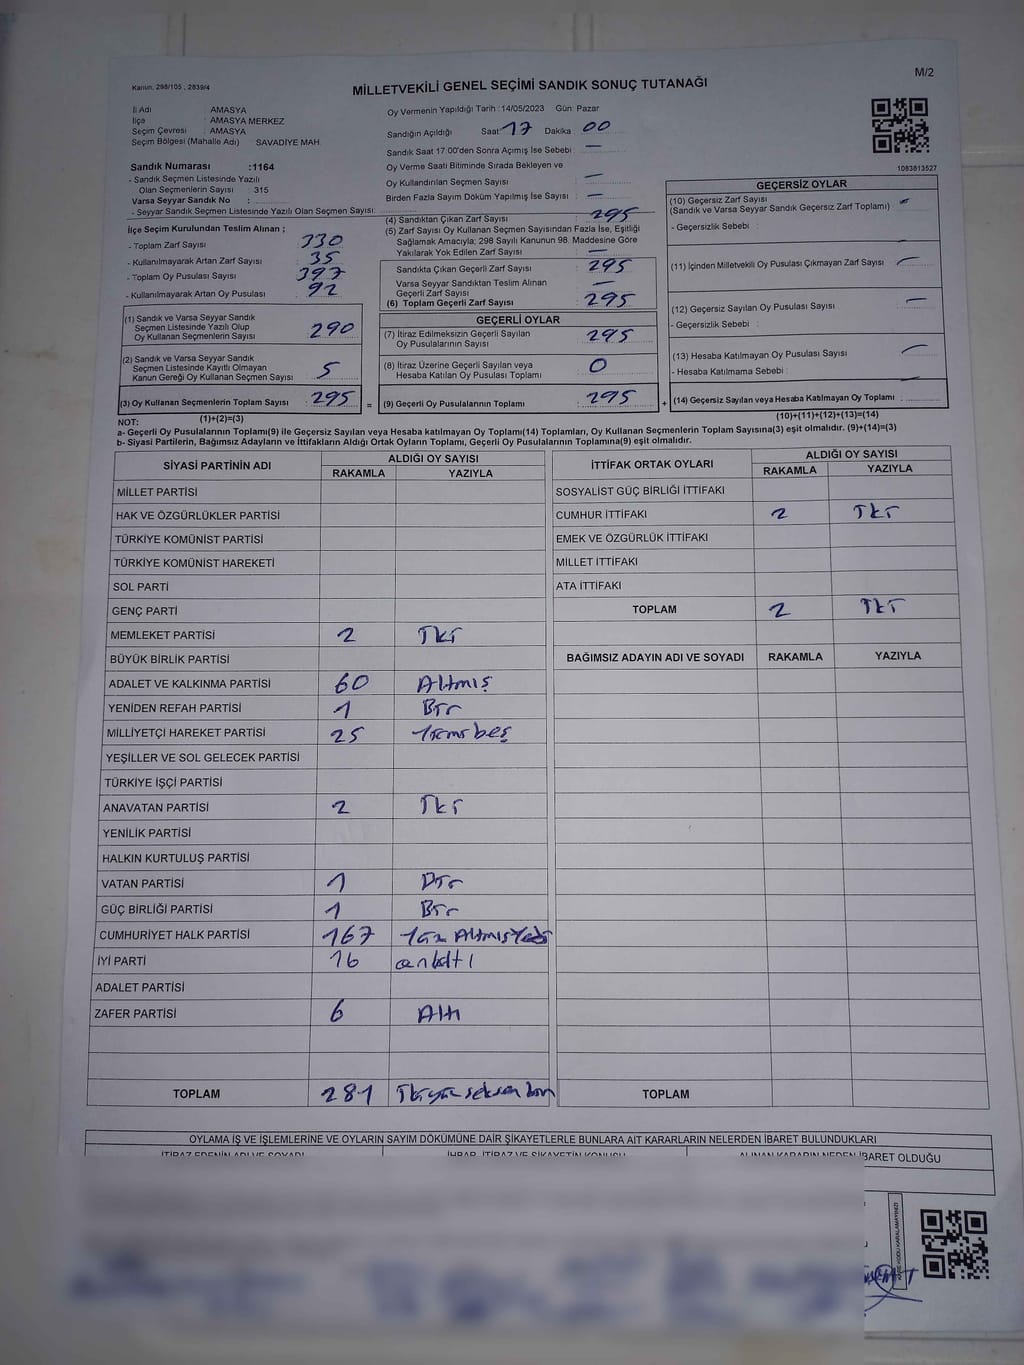 M/2
Kanun, 298/105 , 2839/4
MİLLETVEKİLİ GENEL SEÇİMİ SANDIK SONUÇ TUTANAĞI
İl Adı : AMASYA
İlçe : AMASYA MERKEZ
Seçim Çevresi : AMASYA
Seçim Bölgesi (Mahalle Adı) SAVADİYE MAH.
Sandık Numarası :1164
- Sandık Seçmen Listesinde Yazılı
Olan Seçmenlerin Sayısı : 315
Varsa Seyyar Sandık No :
- Seyyar Sandık Seçmen Listesinde Yazılı Olan Seçmen Sayısı:
İlçe Seçim Kurulundan Teslim Alınan ;
- Toplam Zarf Sayısı 330
- Kullanılmayarak Artan Zarf Sayısı 35
- Toplam Oy Pusulası Sayısı 397
- Kullanılmayarak Artan Oy Pusulası 92
(1) Sandık ve Varsa Seyyar Sandık
Seçmen Listesinde Yazılı Olup
Oy Kullanan Seçmenlerin Sayısı 290
(2) Sandık ve Varsa Seyyar Sandık
Seçmen Listesinde Kayıtlı Olmayan
Kanun Gereği Oy Kullanan Seçmen Sayısı 5
(3) Oy Kullanan Seçmenlerin Toplam Sayısı 295
(1)+(2)=(3)
Oy Vermenin Yapıldığı Tarih : 14/05/2023 Gün: Pazar
Sandığın Açıldığı Saat 17 Dakika 00
Sandık Saat 17:00'den Sonra Açımış İse Sebebi : —
Oy Verme Saati Bitiminde Sırada Bekleyen ve
Oy Kullandırılan Seçmen Sayısı : —
Birden Fazla Sayım Döküm Yapılmış İse Sayısı : —
(4) Sandıktan Çıkan Zarf Sayısı 295
(5) Zarf Sayısı Oy Kullanan Seçmen Sayısından Fazla İse, Eşitliği
Sağlamak Amacıyla; 298 Sayılı Kanunun 98. Maddesine Göre
Yakılarak Yok Edilen Zarf Sayısı —
Sandıkta Çıkan Geçerli Zarf Sayısı 295
Varsa Seyyar Sandıktan Teslim Alınan
Geçerli Zarf Sayısı —
(6) Toplam Geçerli Zarf Sayısı 295
GEÇERLİ OYLAR
(7) İtiraz Edilmeksizin Geçerli Sayılan
Oy Pusulalarının Sayısı 295
(8) İtiraz Üzerine Geçerli Sayılan veya
Hesaba Katılan Oy Pusulası Toplamı 0
= (9) Geçerli Oy Pusulalarının Toplamı 295
1083813527
GEÇERSİZ OYLAR
(10) Geçersiz Zarf Sayısı —
(Sandık ve Varsa Seyyar Sandık Geçersiz Zarf Toplamı)
- Geçersizlik Sebebi :
(11) İçinden Milletvekili Oy Pusulası Çıkmayan Zarf Sayısı —
(12) Geçersiz Sayılan Oy Pusulası Sayısı —
- Geçersizlik Sebebi :
(13) Hesaba Katılmayan Oy Pusulası Sayısı —
- Hesaba Katılmama Sebebi :
+ (14) Geçersiz Sayılan veya Hesaba Katılmayan Oy Toplamı : —
(10)+(11)+(12)+(13)=(14)
NOT:
a- Geçerli Oy Pusulalarının Toplamı(9) ile Geçersiz Sayılan veya Hesaba katılmayan Oy Toplamı(14) Toplamları, Oy Kullanan Seçmenlerin Toplam Sayısına(3) eşit olmalıdır. (9)+(14)=(3)
b- Siyasi Partilerin, Bağımsız Adayların ve İttifakların Aldığı Ortak Oyların Toplamı, Geçerli Oy Pusulalarının Toplamına(9) eşit olmalıdır.
SİYASİ PARTİNİN ADI ALDIĞI OY SAYISI
RAKAMLA YAZIYLA
MİLLET PARTİSİ
HAK VE ÖZGÜRLÜKLER PARTİSİ
TÜRKİYE KOMÜNİST PARTİSİ
TÜRKİYE KOMÜNİST HAREKETİ
SOL PARTİ
GENÇ PARTİ
MEMLEKET PARTİSİ 2 İki
BÜYÜK BİRLİK PARTİSİ
ADALET VE KALKINMA PARTİSİ 60 Altmış
YENİDEN REFAH PARTİSİ 1 Bir
MİLLİYETÇİ HAREKET PARTİSİ 25 Yirmi beş
YEŞİLLER VE SOL GELECEK PARTİSİ
TÜRKİYE İŞÇİ PARTİSİ
ANAVATAN PARTİSİ 2 İki
YENİLİK PARTİSİ
HALKIN KURTULUŞ PARTİSİ
VATAN PARTİSİ 1 Bir
GÜÇ BİRLİĞİ PARTİSİ 1 Bir
CUMHURİYET HALK PARTİSİ 167 Yüz Altmış Yedi
İYİ PARTİ 16 on altı
ADALET PARTİSİ
ZAFER PARTİSİ 6 Altı
TOPLAM 281 İki yüz seksen bir
İTTİFAK ORTAK OYLARI ALDIĞI OY SAYISI
RAKAMLA YAZIYLA
SOSYALİST GÜÇ BİRLİĞİ İTTİFAKI
CUMHUR İTTİFAKI 2 İki
EMEK VE ÖZGÜRLÜK İTTİFAKI
MİLLET İTTİFAKI
ATA İTTİFAKI
TOPLAM 2 İki
BAĞIMSIZ ADAYIN ADI VE SOYADI RAKAMLA YAZIYLA
TOPLAM
OYLAMA İŞ VE İŞLEMLERİNE VE OYLARIN SAYIM DÖKÜMÜNE DAİR ŞİKAYETLERLE BUNLARA AİT KARARLARIN NELERDEN İBARET BULUNDUKLARI
İTİRAZ EDENİN ADI VE SOYADI İHBAR, İTİRAZ VE ŞİKAYETİN KONUSU ALINAN KARARIN NEDEN İBARET OLDUĞU